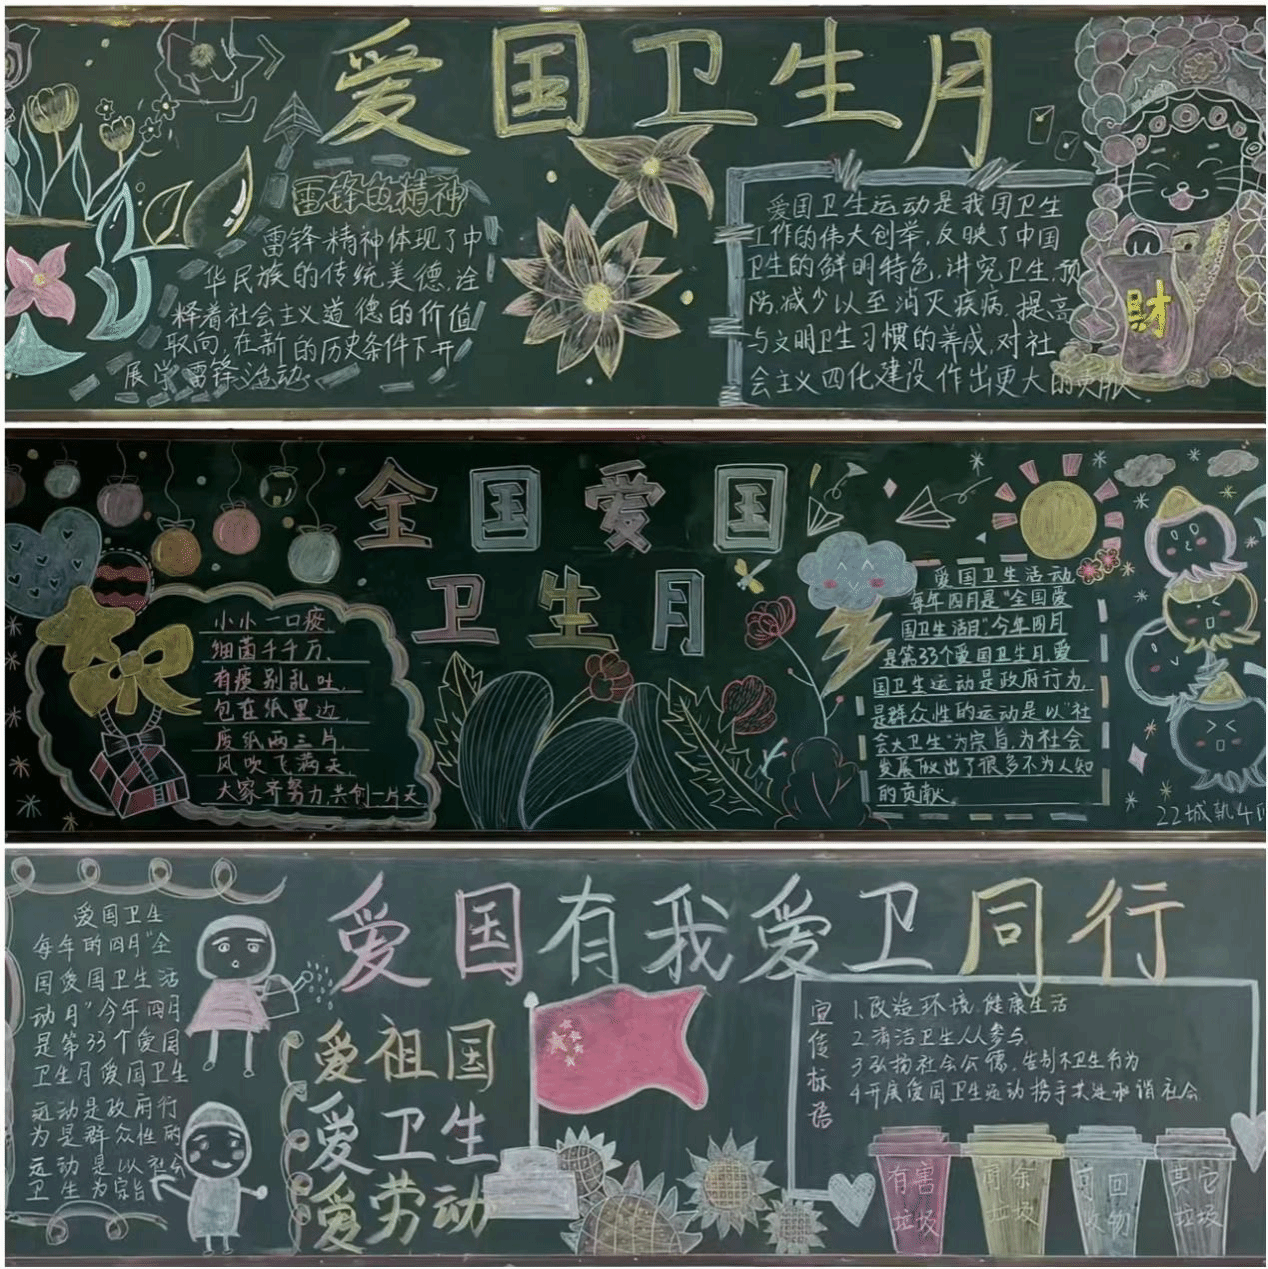 爱国卫生月
雷锋的精神
雷锋精神体现了中
华民族的传统美德,诠
释着社会主义道德的价值
取向,在新的历史条件下开
展学雷锋活动
爱国卫生运动是我国卫生
工作的伟大创举,反映了中国
卫生的鲜明特色,讲究卫生,预
防,减少以至消灭疾病,提高
与文明卫生习惯的养成,对社
会主义四化建设作出更大的贡献
財
全国爱国
卫生月
小小一口痰
细菌千千万,
有痰别乱吐,
包在纸里边,
废纸两三片,
风吹飞满天,
大家齐努力,共创一片天
爱国卫生活动
每年四月是“全国爱
国卫生活月”,今年四月
是第33个爱国卫生月,爱
国卫生运动是政府行为,
是群众性的运动是以“社
会大卫生”为宗旨,为社会
发展做出了很多不为人知
的贡献
22城轨4
爱国有我爱卫同行
爱国卫生
每年的四月“全
国爱国卫生活
动月”今年四月
是第33个爱国
卫生月爱国卫生
运动是政府行
为是群众性的
运动是以社会
卫生为宗旨
爱祖国
爱卫生
爱劳动
宣传标语
1.改造环境,健康生活
2.清洁卫生人人参与
3.弘扬社会公德,告别不卫生行为
4开展爱国卫生运动携手共进和谐社会
有害
垃圾
垃圾
可回
收物
其它
垃圾